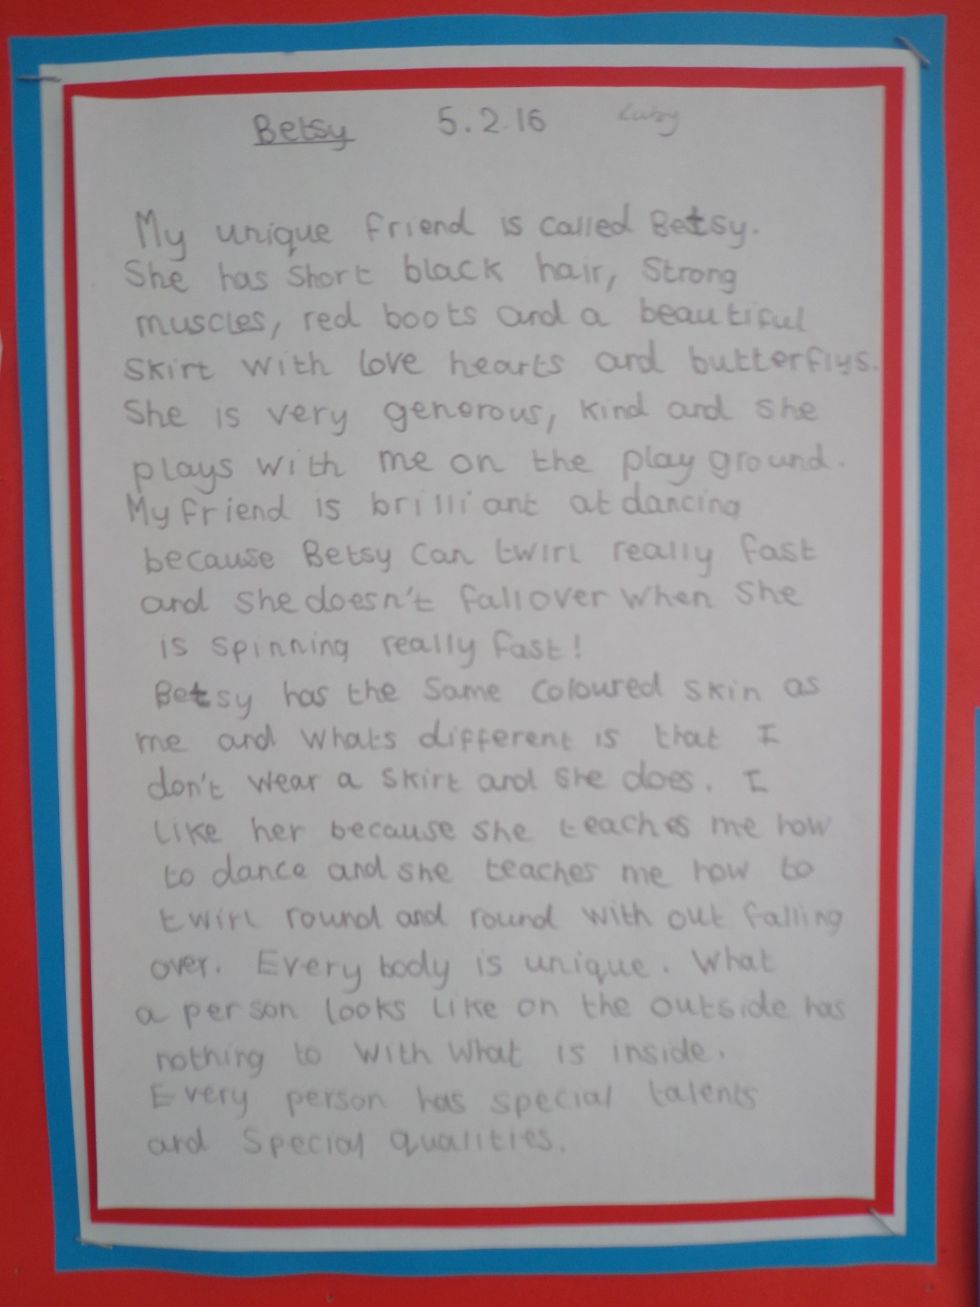 Betsy 5.2.16
My unique friend is called Betsy.
She has short black hair, strong
muscles, red boots and a beautiful
skirt with love hearts and butterflys.
She is very generous, kind and she
plays with me on the play ground.
My friend is brilliant at dancing
because Betsy can twirl really fast
and she doesn't fall over when she
is spinning really fast!
Betsy has the same coloured skin as
me and whats different is that I
don't wear a skirt and she does. I
like her because she teaches me how
to dance and she teaches me how to
twirl round and round with out falling
over. Every body is unique. What
a person looks like on the outside has
nothing to with what is inside.
Every person has special talents
and special qualities.